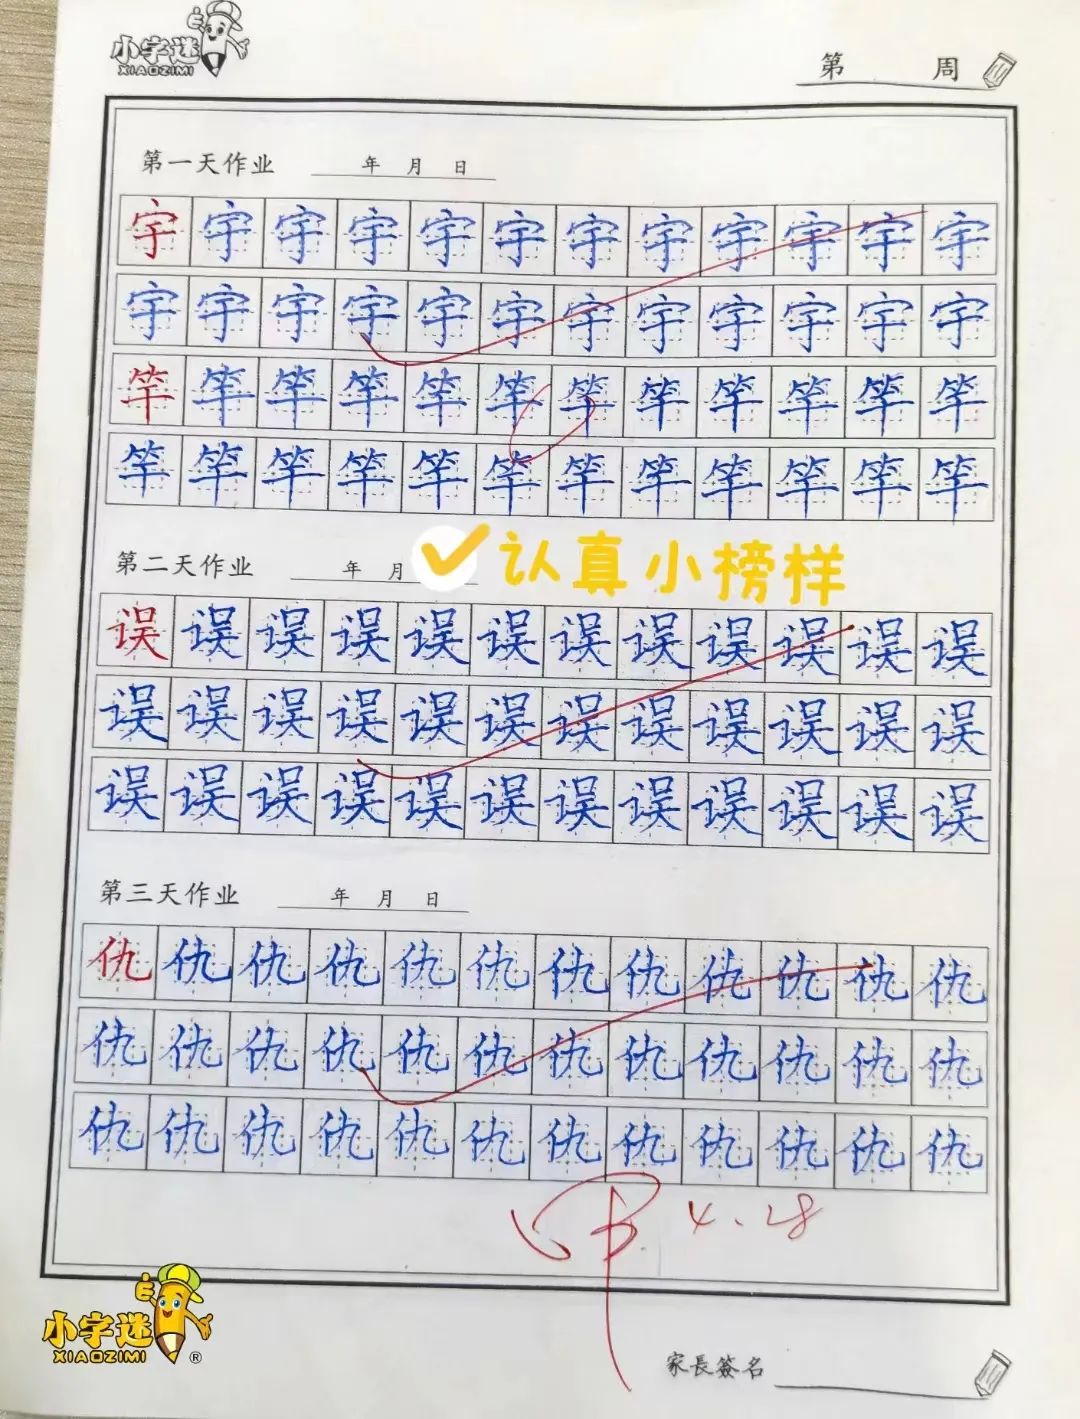 小字迷
XIAOZIMI
第 周
第一天作业 年 月 日
宇宇宇宇宇宇宇宇宇宇宇宇
宇宇宇宇宇宇宇宇宇宇宇宇
竿竿竿竿竿竿竿竿竿竿竿竿
竿竿竿竿竿竿竿竿竿竿竿竿
第二天作业 年 月
认真小榜样
误误误误误误误误误误误误
误误误误误误误误误误误误
误误误误误误误误误误误误
第三天作业 年 月 日
仇仇仇仇仇仇仇仇仇仇仇仇
仇仇仇仇仇仇仇仇仇仇仇仇
仇仇仇仇仇仇仇仇仇仇仇仇
4.28
小字迷
XIAOZIMI®
家長簽名